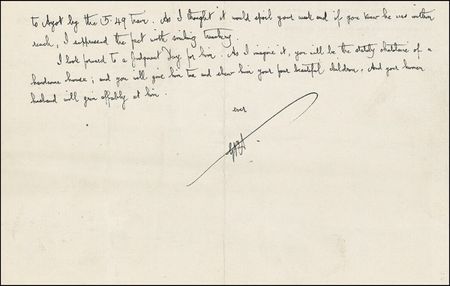 to Ayot by the 5.49 train. As I thought it would spoil your week end if you knew he was within
reach, I suppressed the fact with smiling treachery.
I look forward to a Judgment Day for him. As I imagine it, you will be the stately chatelaine of a
handsome house; and you will give him tea and show him your four beautiful children. And your
husband will grin affably at him.
ever
GBS